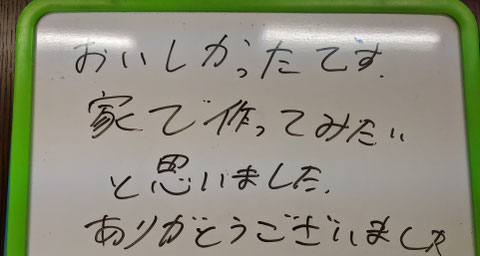 おいしかったです.
家で作ってみたい
と思いました.
ありがとうございました